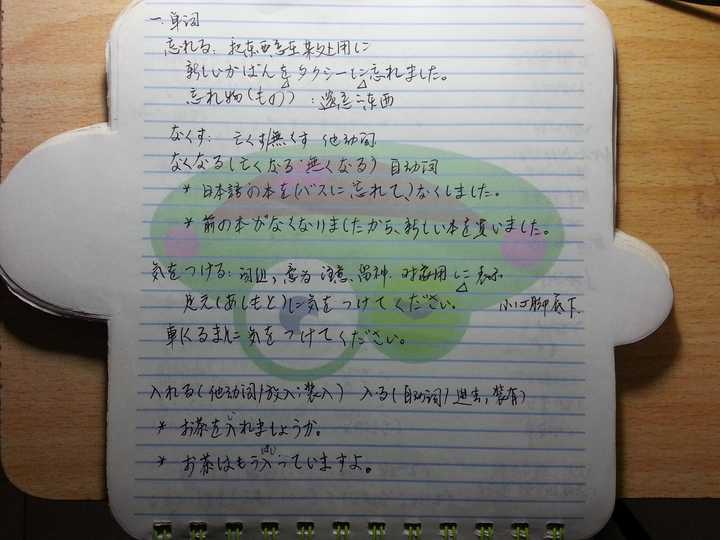 一.单词
忘れる：把东西忘在某处用に
新しいかばんをタクシーに忘れました。
忘れ物(もの)：遗忘的东西
なくす：亡くす/無くす 他动词
なくなる(亡くなる·無くなる) 自动词
* 日本語の本を(バスに忘れて、)なくしました。
* 前の本がなくなりましたから、新しい本を買いました。
気をつける：词组，意为 注意、留神. 对象用に表示
足元(あしもと)に気をつけてください。 小心脚底下.
車(くるま)に気をつけてください。
入れる(他动词/放入；装入) 入る(自动词/进去，装有)
* お茶を入れましょうか。
* お茶はもう入っていますよ。